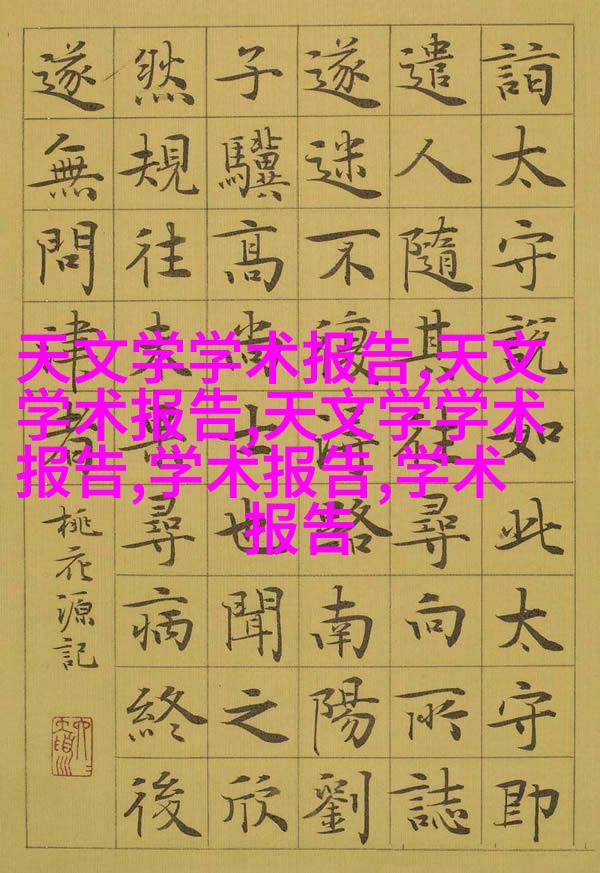 詣太守說如此太守即
遣人隨其往尋向所誌
遂迷不復得路南陽劉
子驥高尚士也聞之欣
然規往未果尋病終後
遂無問津者
桃花源記
天文学学术报告,天文
学术报告,天文学学术
报告,学术报告,学术
报告